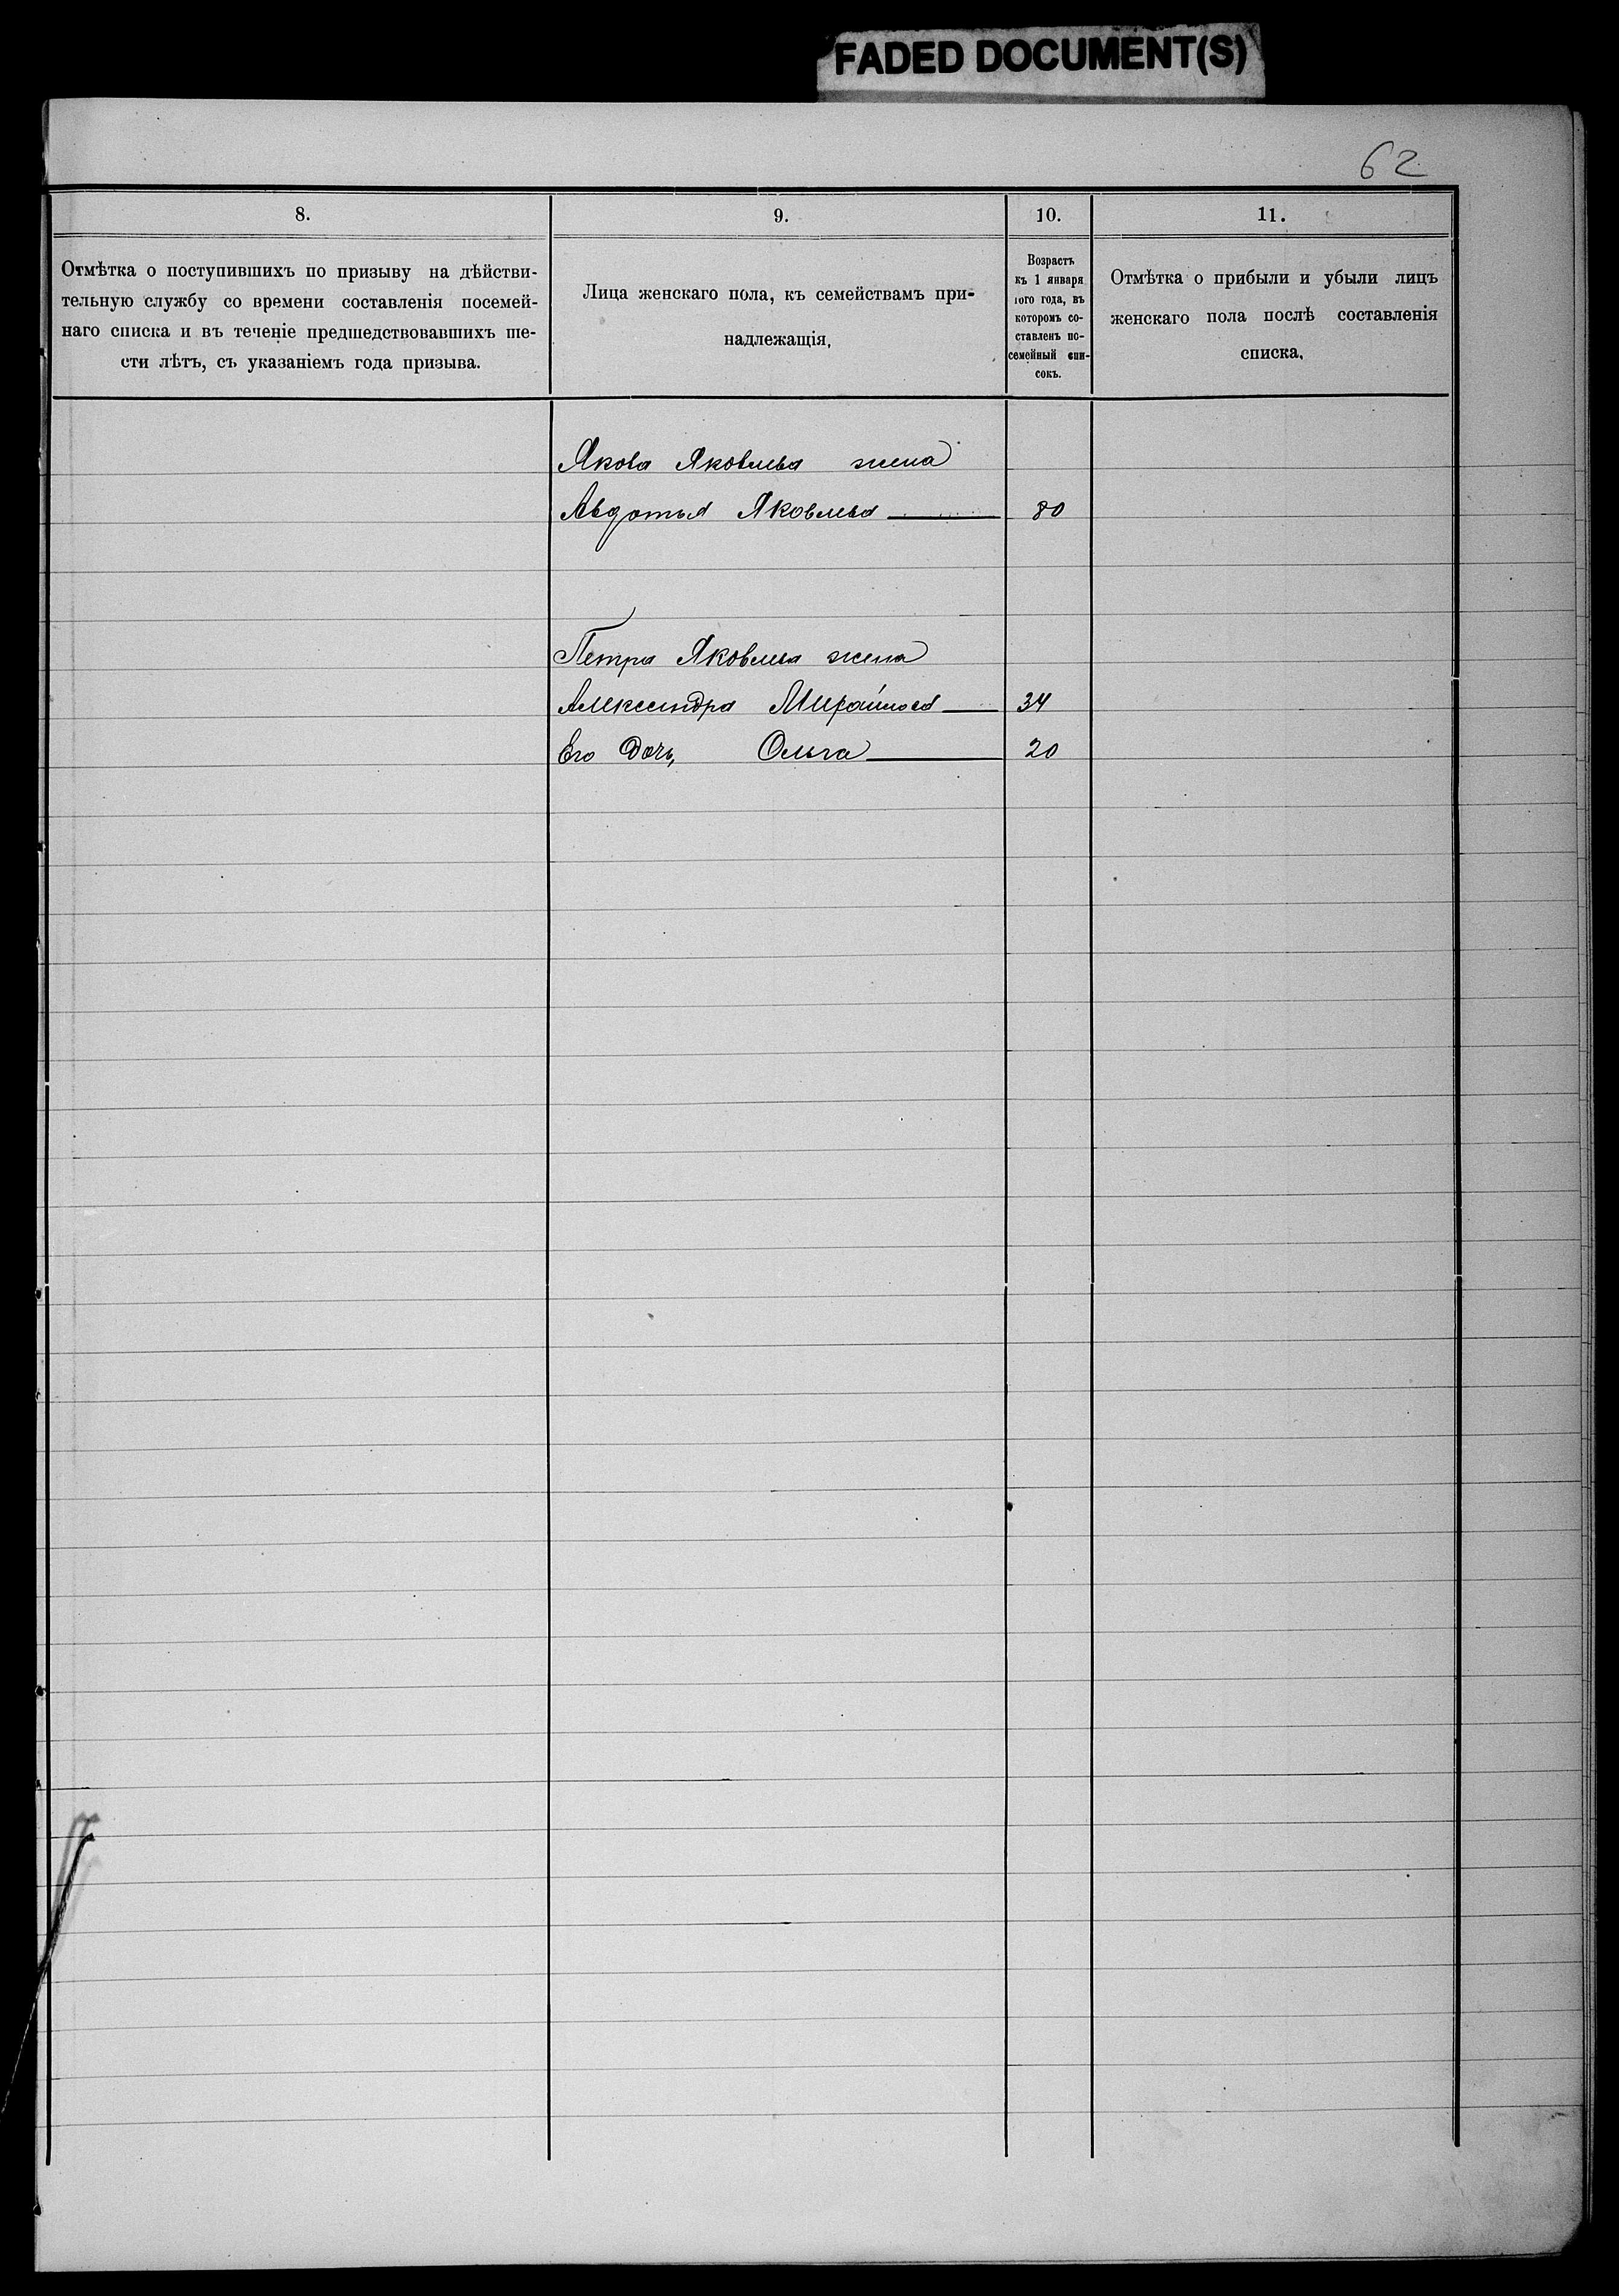 FADED DOCUMENT(S)
62
8.
Отмѣтка о поступившихъ по призыву на дѣйстви-
тельную службу со времени составленія посемей-
наго списка и въ теченіе предшедствовавшихъ ше-
сти лѣтъ, съ указаніемъ года призыва.
9.
Лица женскаго пола, къ семействамъ при-
надлежащія,
10.
Возрастъ
къ 1 января
того года, въ
которомъ со-
ставленъ по-
семейный спи-
сокъ.
11.
Отмѣтка о прибыли и убыли лицъ
женскаго пола послѣ составленія
списка,
Якова Яковлева жена
Авдотья Яковлева 80
Петра Яковлева жена
Александра Михайлова 34
Его дочь, Ольга 20